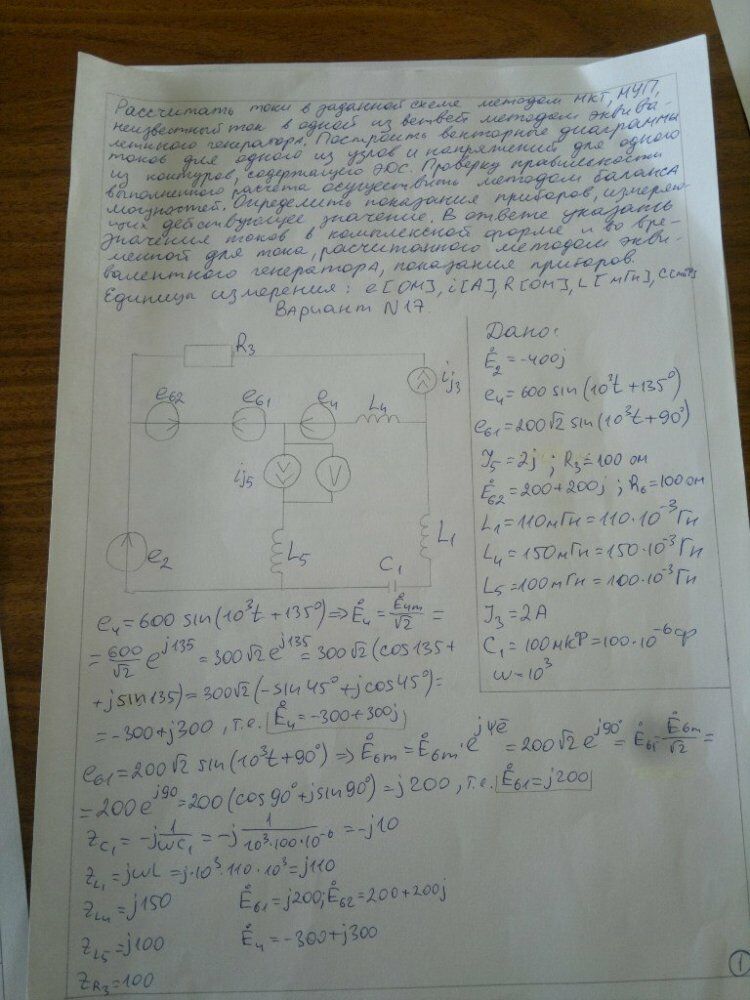 Рассчитать токи в заданной схеме методом МКТ, МУП,
неизвестный ток в одной из ветвей методом эквива-
лентного генератора. Построить векторные диаграммы
токов для одного из узлов и напряжений для одного
из контуров, содержащего ЭДС. Проверку правильности
выполненного расчета осуществить методом баланса
мощностей. Определить показания приборов, измеряю-
щих действующее значение. В ответе указать
значения токов в комплексной форме и во вре-
менной для тока, рассчитанного методом экви-
валентного генератора, показания приборов.
Единицы измерения: e[ОМ], i[А], R[ОМ], L[мГн], C[мкФ]
Вариант N17.
R3
e62
e61
e4
L4
ij3
ij5
V
e2
L5
C1
L1
Дано:
E̊2 = -400j
e4 = 600 sin(10³t + 135°)
e61 = 200√2 sin(10³t + 90°)
J5 = 2j ; R3 = 100 ом
E̊62 = 200 + 200j ; R6 = 100 ом
L1 = 110мГн = 110·10⁻³ Гн
L4 = 150мГн = 150·10⁻³ Гн
L5 = 100мГн = 100·10⁻³ Гн
J3 = 2А
C1 = 100мкФ = 100·10⁻⁶ ф
w = 10³
e4 = 600 sin(10³t + 135°) ⇒ E̊4 = E̊4m/√2 =
= 600/√2 e^j135 = 300√2 e^j135 = 300√2 (cos135 +
+ j sin135) = 300√2 (-sin45° + j cos45°) =
= -300 + j300, т.е. E̊4 = -300 + 300j
e61 = 200√2 sin(10³t + 90°) ⇒ E̊6m = E̊6m · e^jφe = 200√2 e^j90° = E̊61 = E̊6m/√2 =
= 200e^j90 = 200 (cos90° + j sin90°) = j200, т.е. E̊61 = j200
zC1 = -j 1/wC1 = -j 1/10³·100·10⁻⁶ = -j10
zL1 = jwL = j·10³·110·10³ = j110
zL4 = j150 E̊61 = j200; E̊62 = 200 + 200j
zL5 = j100 E̊4 = -300 + j300
zR3 = 100
1